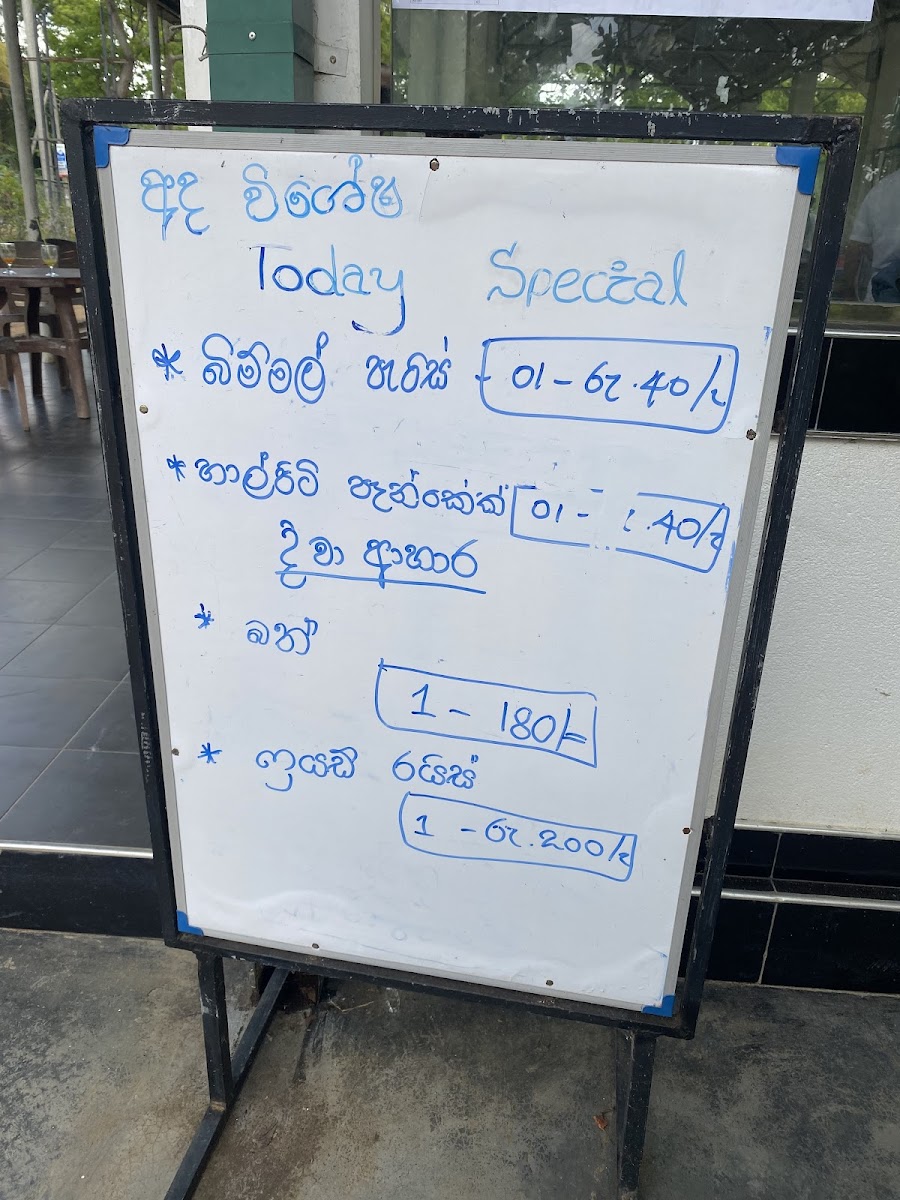 අද විශේෂ
Today Special
* බිම්මල් පැටිස් - 01 - රු.40/=
* හාල්පිටි පෑන්කේක් 01 - රු.40/=
දිවා ආහාර
* බත්
1 - 180/=
* ෆ්‍රයිඩ් රයිස්
1 - රු.200/=